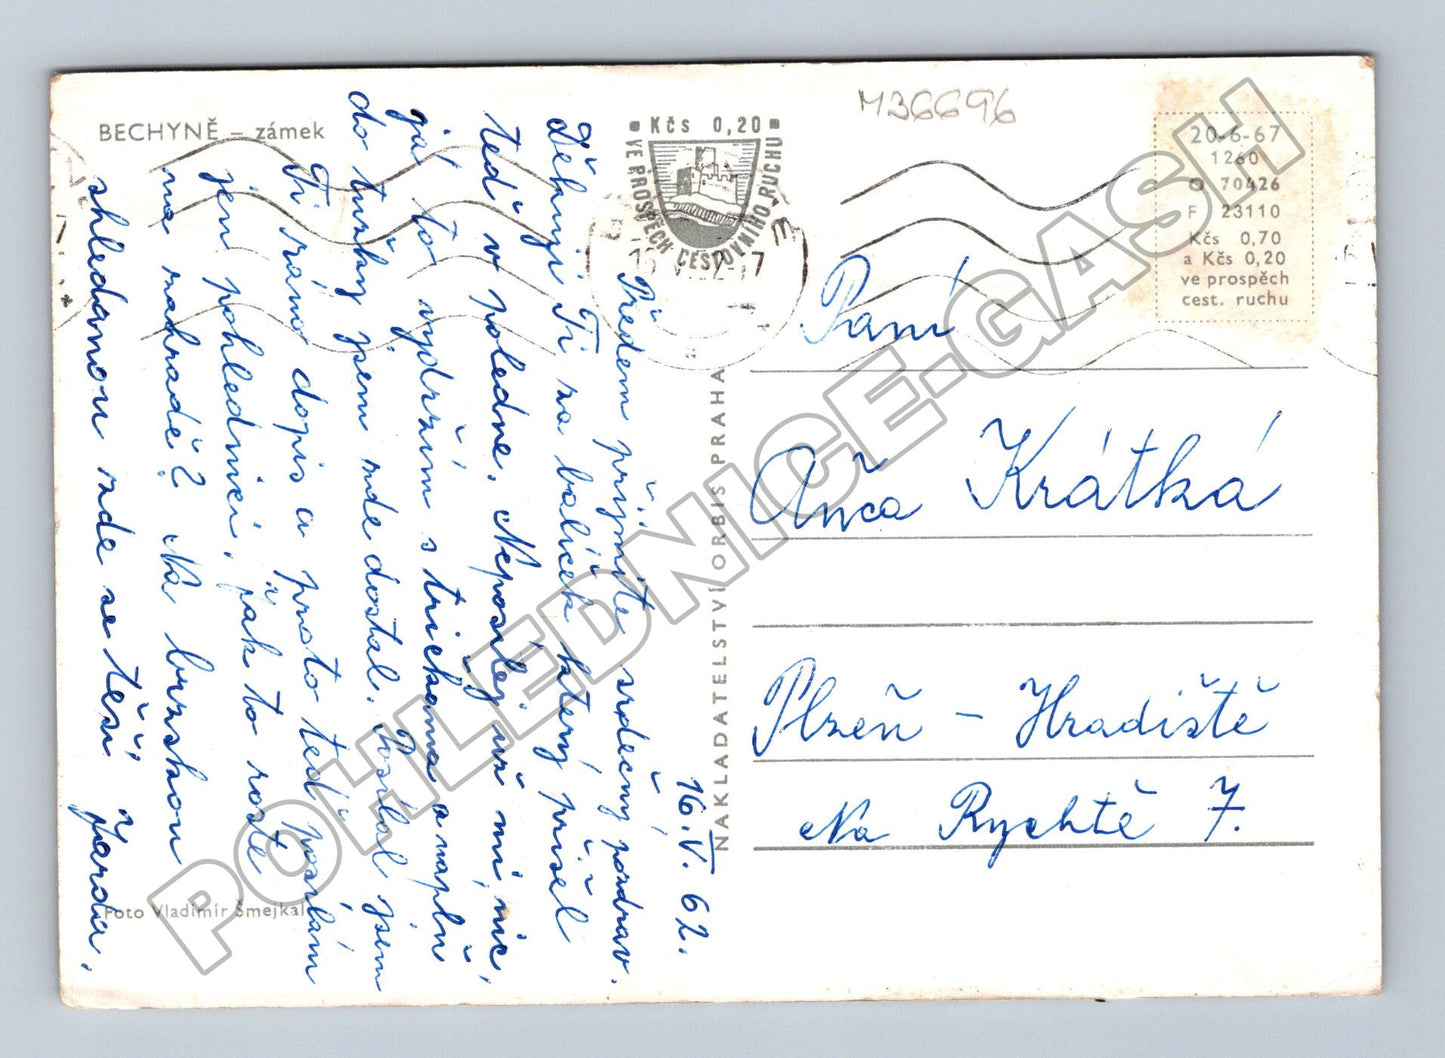 BECHYNĚ – zámek
M36696
Kčs 0,20
VE PROSPĚCH CESTOVNÍHO RUCHU
20-6-67
1260
70426
F 23110
Kčs 0,70
a Kčs 0,20
ve prospěch
cest. ruchu
16. V. 62.
Předem přijměte srdečný pozdrav.
Děkuji Ti za balíček který přišel
teď v poledne. Neposílej už mi nic,
já to vydržím s trickama a naplň
do tužky jsem zde dostal. Poslal jsem
Ti ráno dopis a proto teď posílám
jen pohlednici, jak to roste
na zahradě? Na brzskou
shledanou zde se těší Jarda.
NAKLADATELSTVÍ ORBIS PRAHA
Paní
Anča Krátká
Plzeň – Hradiště
Na Rychtě 7.
Foto Vladimír Šmejkal
POHLEDNICE-GASH